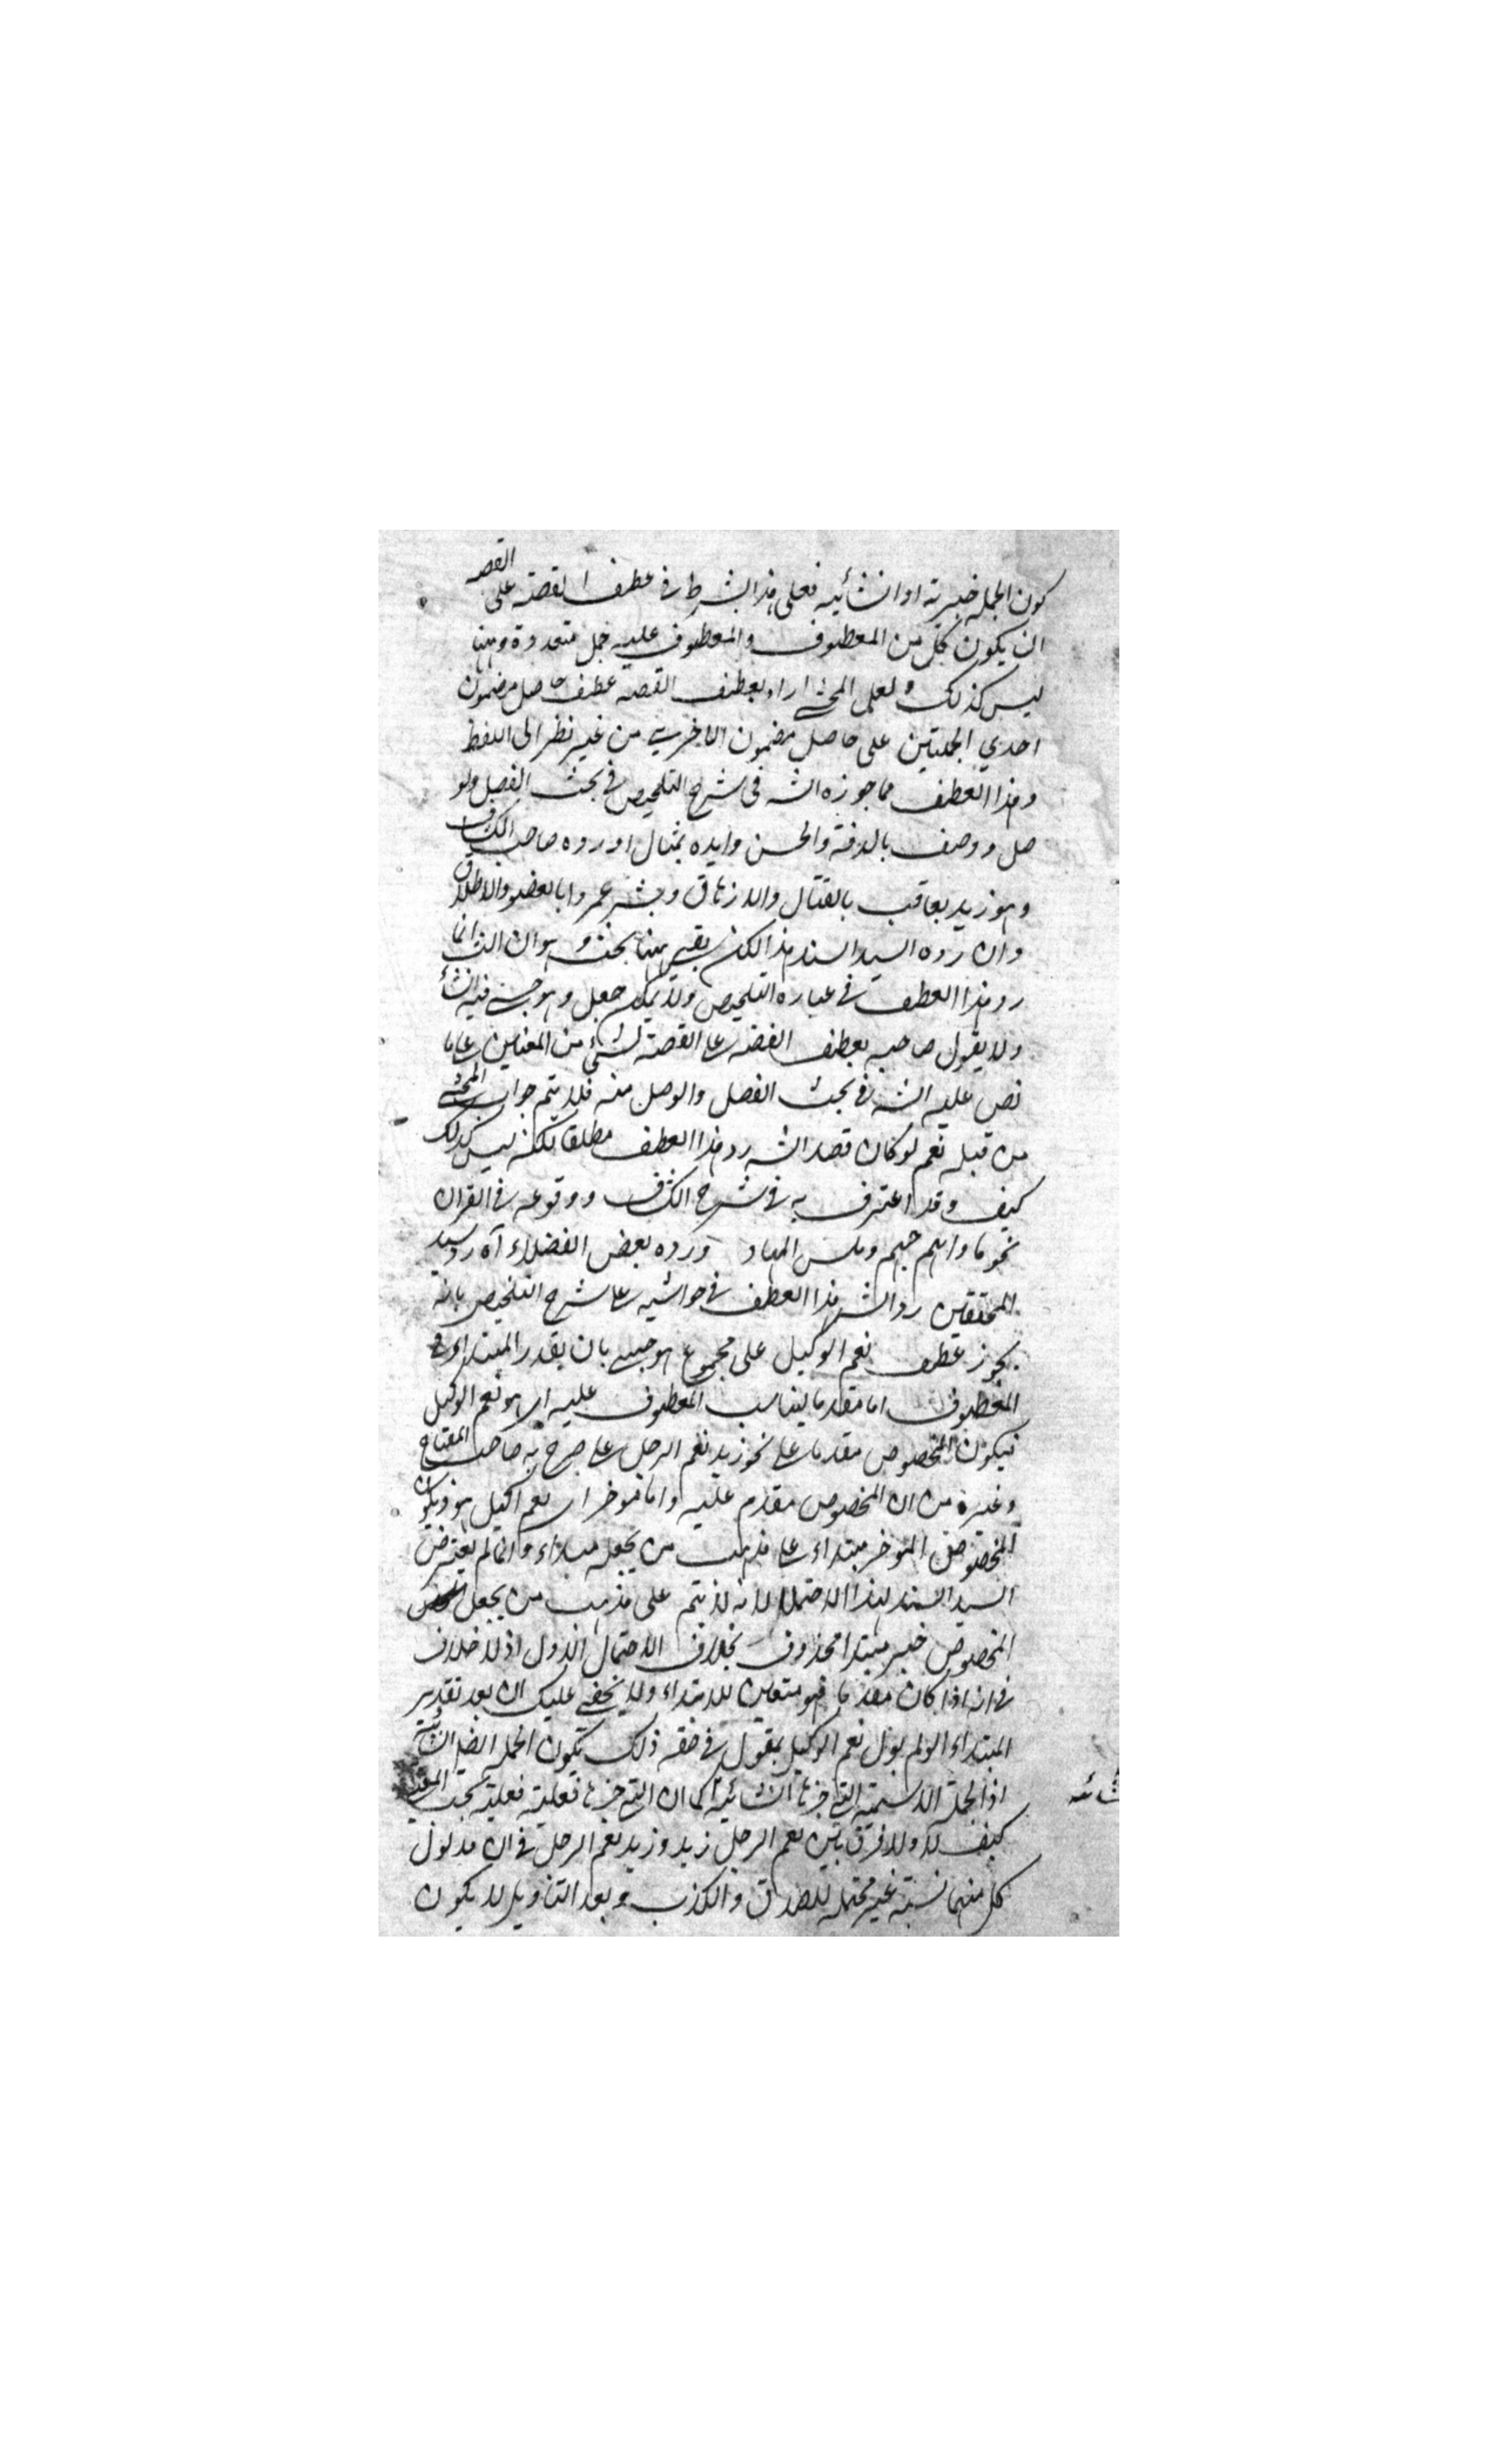 كون الجملة خبرية او انشائية فعلى هذا يشترط في عطف القصة على القصة
ان يكون كل من المعطوف والمعطوف عليه جمل متعددة وههنا
ليس كذلك ولعل المحشي اراد بعطف القصة عطف حاصل مضمون
احدي الجملتين على حاصل مضمون الاخرى من غير نظر الى اللفظ
وهذا العطف مما جوزه الشه في شرح التلخيص في بحث الفصل والو
صل ووصف بالدقة والحسن وايده بمثال اورده صاحب الكشاف
وهو زيد يعاقب بالقتال والازهاق وبشر عمروا بالعفو والاطلاق
وان رده السيد السند هذا لكن بقي ههنا بحث وهو ان الشه انما
رد هذا العطف في عبارة التلخيص ولا يمكن جعل وهو حسبي فيه انشاء
ولا يقول صاحبه بعطف القصة على القصة لشئ من المعنيين على ما
نص عليه الشه في بحث الفصل والوصل منه فلا يتم جواب المحشي
من قبله نعم لو كان قصد الشه رد هذا العطف مطلقا لكنه ليس كذلك
كيف وقد اعترف به في شرح الكشاف ووقوعه في القران
نحو ماواهم جهنم وبئس المهاد ورده بعض الفضلاء آه رد سيد
المحققين رد الشه هذا العطف في حواشيه على شرح التلخيص بانه
يجوز عطف نعم الوكيل على مجموع هو حسبي بان يقدر المبتداء في
المعطوف اما مقدما ليناسب المعطوف عليه اي هو نعم الوكيل
فيكون المخصوص مقدما على نحو زيد نعم الرجل على صرح به صاحب المفتاح
وغيره من ان المخصوص مقدم عليه واما مؤخرا اي نعم الوكيل هو ويكون
المخصوص المؤخر مبتداء على مذهب من يجعله مبتداء وانما لم يتعرض
السيد السند لهذا الاحتمال لانه لا يتم على مذهب من يجعل
المخصوص خبر مبتدا محذوف بخلاف الاحتمال الاول اذ لا خلاف
في انه اذا كان مقدما فهو متعين للابتداء ولا يخفى عليك ان بعد تقدير
المبتداء لو لم يؤل نعم الوكيل بمقول في حقه ذلك تكون الجملة ايضا انشائية
اذ الجملة الاسمية التي خبرها انشائية كما ان التي خبرها فعلية فعلية بحسب المعنى
كيف لا ولا فرق بين نعم الرجل زيد وزيد نعم الرجل في ان مدلول
كل منهما نسبة غير محتملة للصدق والكذب وبعد التاويل لا يكون